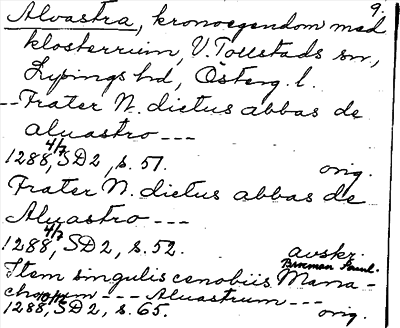 9.
Alvastra, kronoegendom med
klosterruin, V. Tollstads sn,
Lysings hd, Österg. l.
--Frater N. dictus abbas de
aluastro ---
1288 4/7, SD 2, s. 51. orig.
Frater N. dictus abbas de
Aluastro ---
1288 4/7, SD 2, s. 52. avskr.
Item singulis cenobiis Mona-
chorum --- Aluastrum ---
1288, SD 2, s. 65. orig.